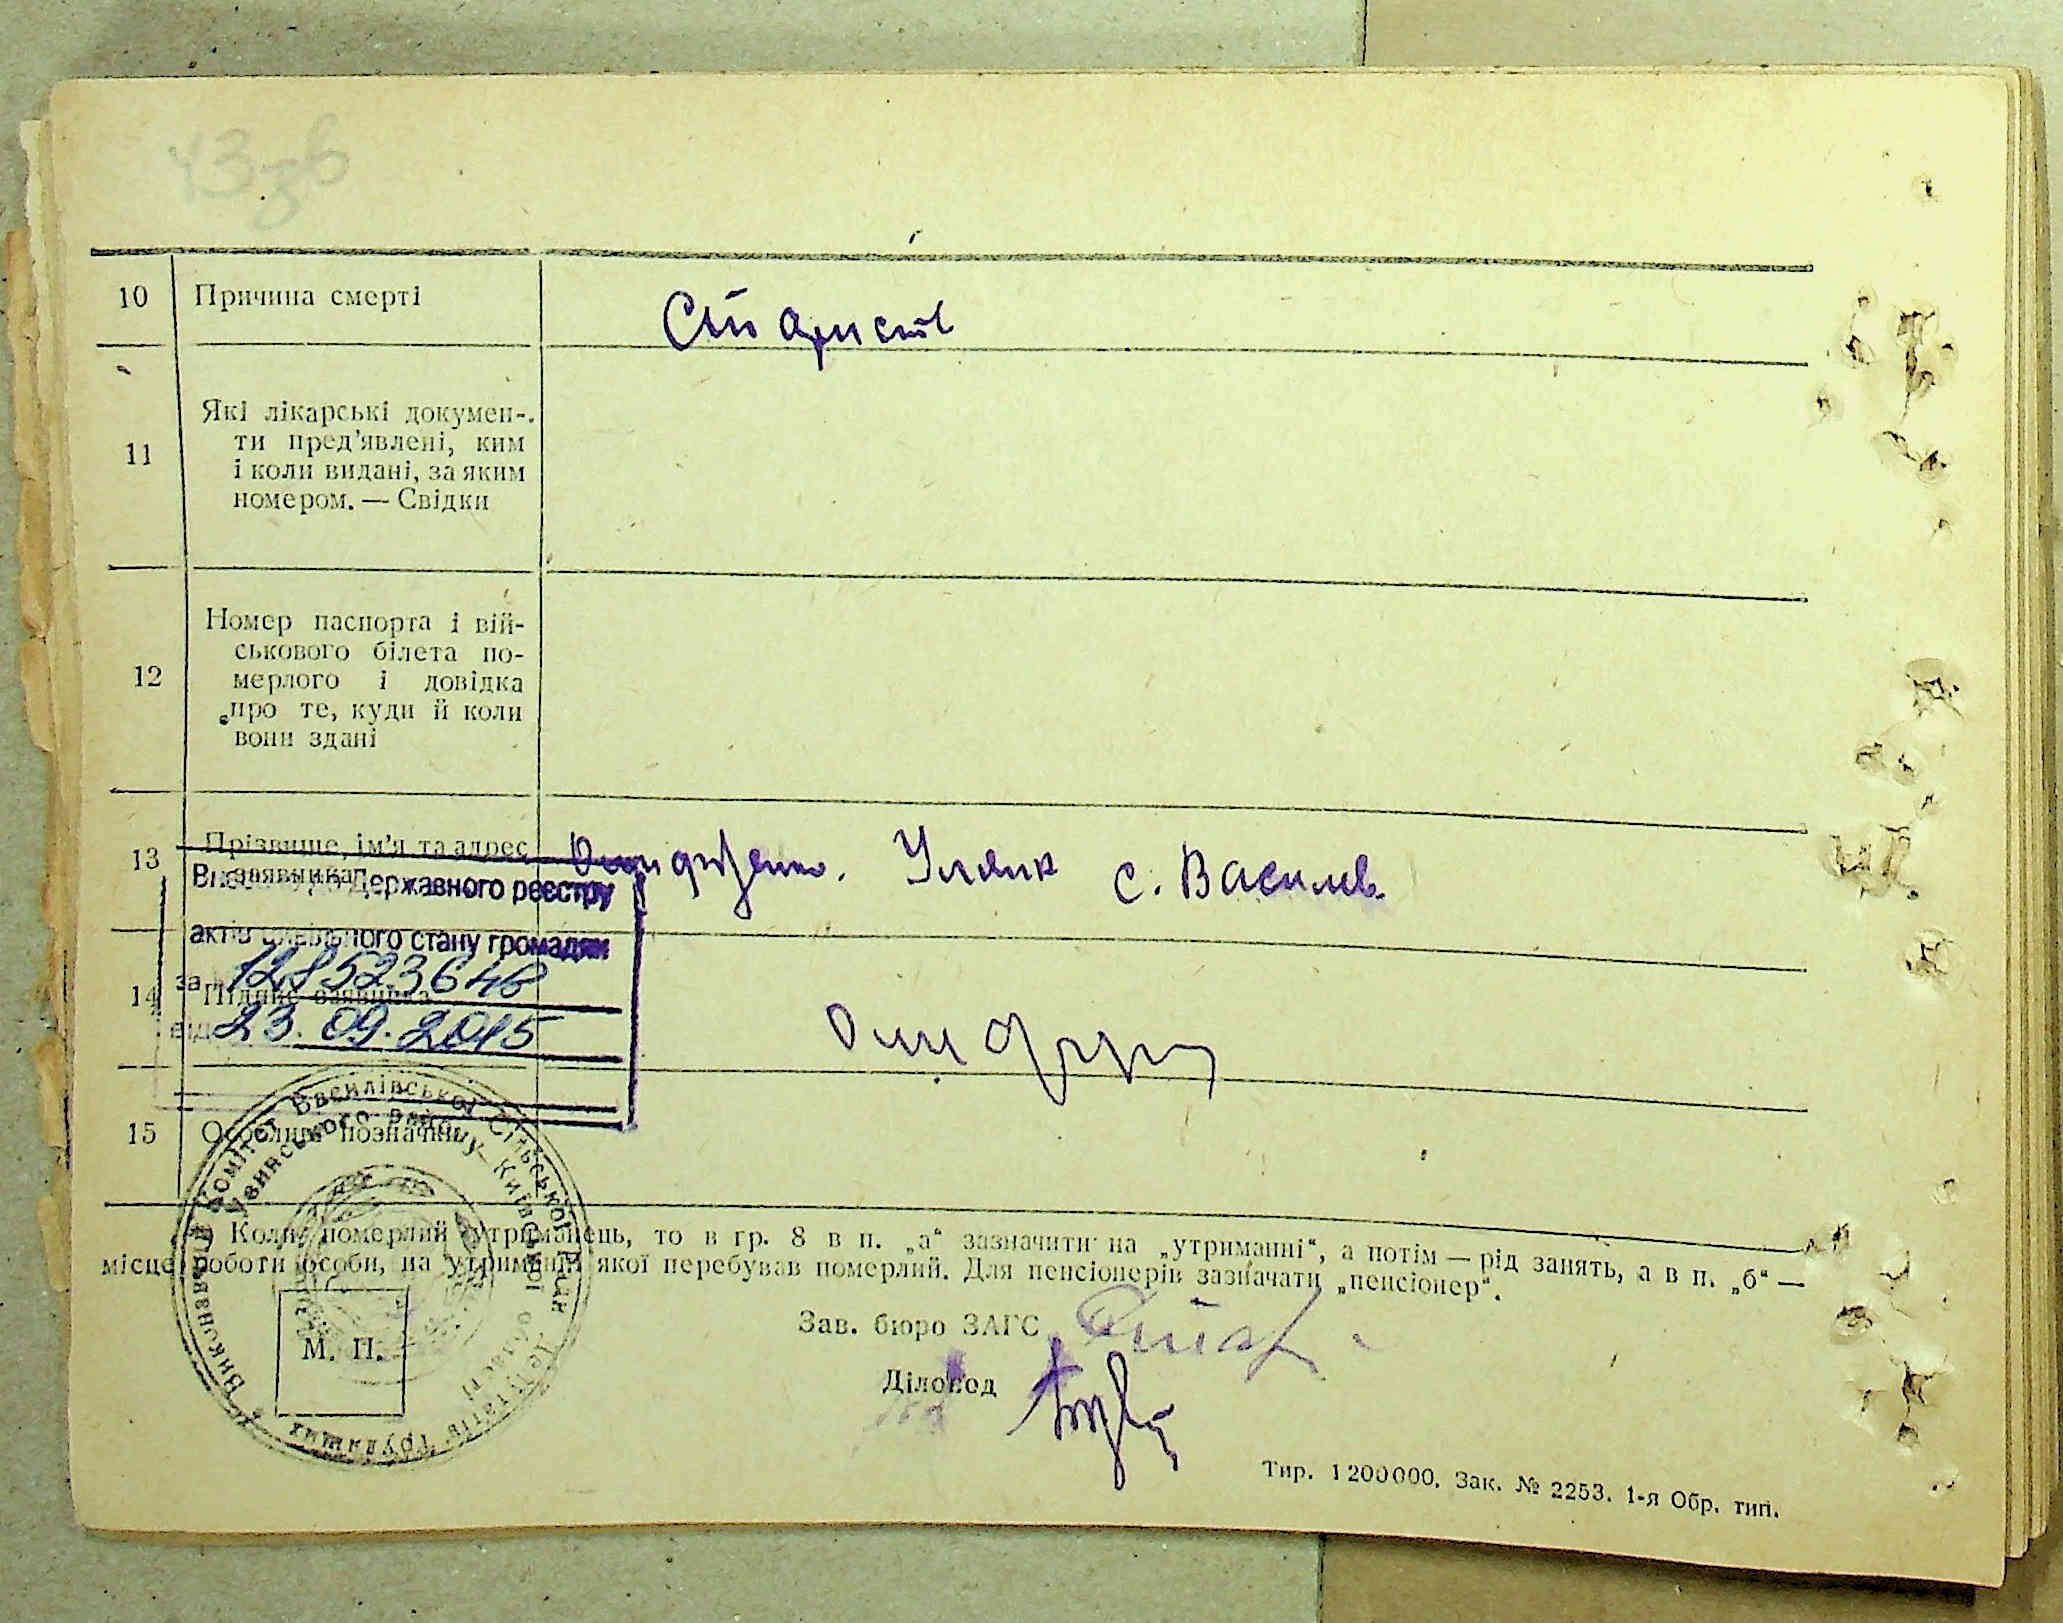 43зв
10 Причина смерті
Старість
11 Які лікарські докумен-
ти пред'явлені, ким
і коли видані, за яким
номером. — Свідки
12 Номер паспорта і вій-
ськового білета по-
мерлого і довідка
про те, куди й коли
вони здані
13 Прізвище, ім'я та адрес
заявника
Уляна с. Василів
Державного реєстру
актів цивільного стану громадян
за 128523648
14 Підпис заявника
від 23.09.2015
15 Особливі позначки
Виконавчий Комітет Василівської Сільської Ради Депутатів Трудящих
Узинського району Київської області
Коли померлий утриманець, то в гр. 8 в п. „а“ зазначити на „утриманні“, а потім — рід занять, а в п. „б“ —
місце роботи особи, на утриманні якої перебував померлий. Для пенсіонерів зазначати „пенсіонер“.
Зав. бюро ЗАГС
М. П.
Діловод
Тир. 1200000. Зак. № 2253. 1-я Обр. тип.